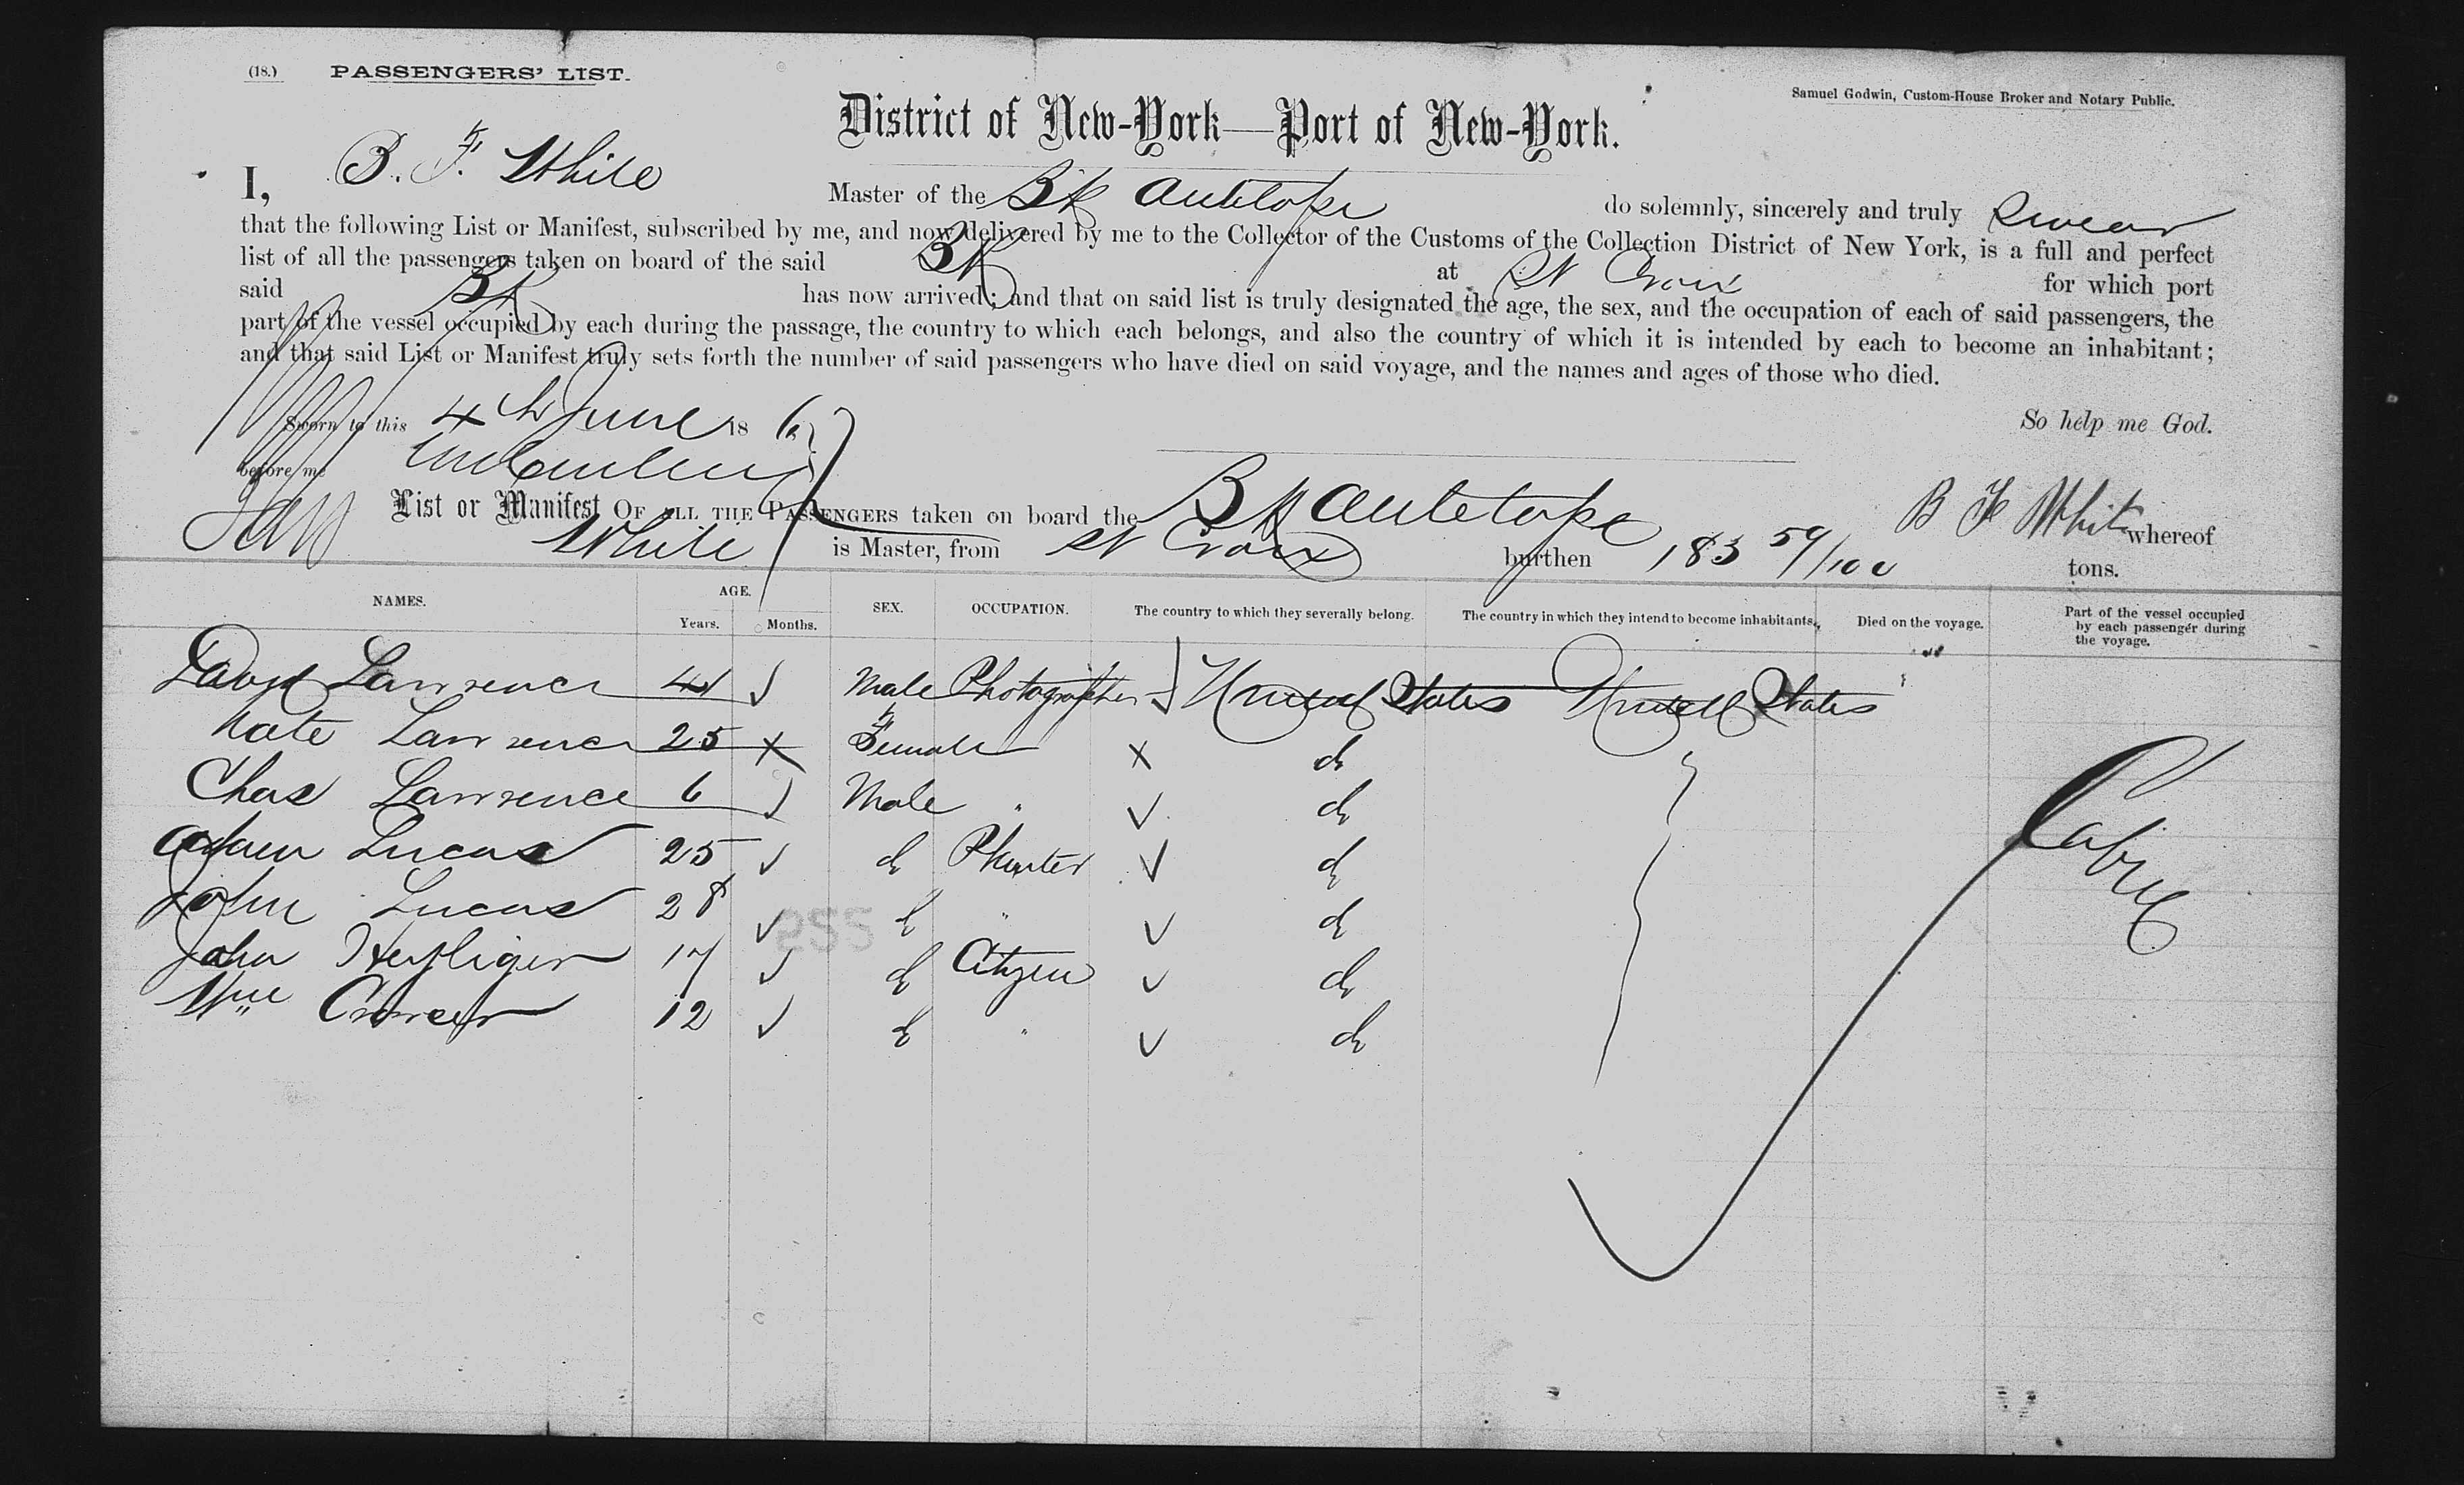 (18.) PASSENGERS' LIST.
Samuel Godwin, Custom-House Broker and Notary Public.
District of New-York—Port of New-York.
I, B. F. White Master of the Bk Antelope do solemnly, sincerely and truly swear
that the following List or Manifest, subscribed by me, and now delivered by me to the Collector of the Customs of the Collection District of New York, is a full and perfect
list of all the passengers taken on board of the said Bk at St Croix for which port
said Bk has now arrived; and that on said list is truly designated the age, the sex, and the occupation of each of said passengers, the
part of the vessel occupied by each during the passage, the country to which each belongs, and also the country of which it is intended by each to become an inhabitant;
and that said List or Manifest truly sets forth the number of said passengers who have died on said voyage, and the names and ages of those who died.
Sworn to this 4th June 18
So help me God.
before me
B F White
List or Manifest OF ALL THE PASSENGERS taken on board the Bk Antelope whereof
White is Master, from St Croix burthen 183 59/100 tons.
NAMES. AGE. Years. Months. SEX. OCCUPATION. The country to which they severally belong. The country in which they intend to become inhabitants. Died on the voyage. Part of the vessel occupied by each passenger during the voyage.
David Lawrence 41 Male Photographer United States United States
Kate Lawrence 25 Female do
Chas Lawrence 6 Male " do
Adam Lucas 25 do Planter do
John Lucas 28 do " do
John Heyliger 17 do Citizen do
Wm 12 do " do
Cabin